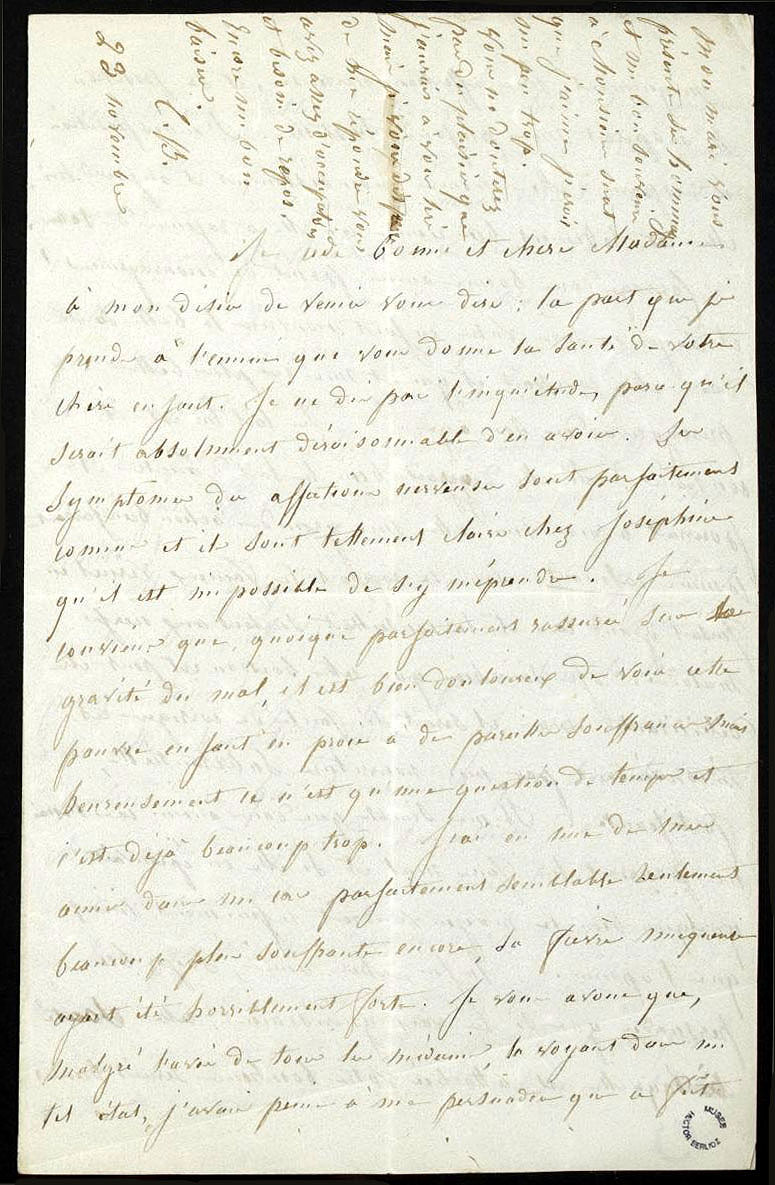 Je cède bonne et chère Madame
à mon désir de venir vous dire la part que je
prends à l'ennui que vous donne la santé de votre
chère enfant. Je ne dis pas l'inquiétude, parce qu'il
serait absolument déraisonnable d'en avoir. Les
symptomes des affections nerveuses sont parfaitement
connus et ils sont tellement clairs chez Joséphine
qu'il est impossible de s'y méprendre. Je
conviens que, quoique parfaitement rassurée sur la
gravité du mal, il est bien douloureux de voir cette
pauvre enfant en proie à de pareilles souffrances mais
heureusement ce n'est qu'une question de temps et
c'est déjà beaucoup trop. J'ai eu une de mes
amies dans un cas parfaitement semblable seulement
beaucoup plus souffrante encore, sa fièvre muqueuse
ayant été horriblement forte. Je vous avoue que,
malgré l'avis de tous les médecins, la voyant dans un
tel état, j'avais peine à me persuader que ce fût
Mon mari vous
présente ses hommages
et mi bon souvenir
à Monsieur Suat
que j'aime, j'écris
un peu trop.
Vous ne doutez
pas du plaisir que
j'aurais à vous lire
mais je vous dispense
de me répondre vous
avez assez d'occupations
et besoin de repos.
Encore un bon
baiser.
C.B.
23 novembre
MUSEE HECTOR BERLIOZ